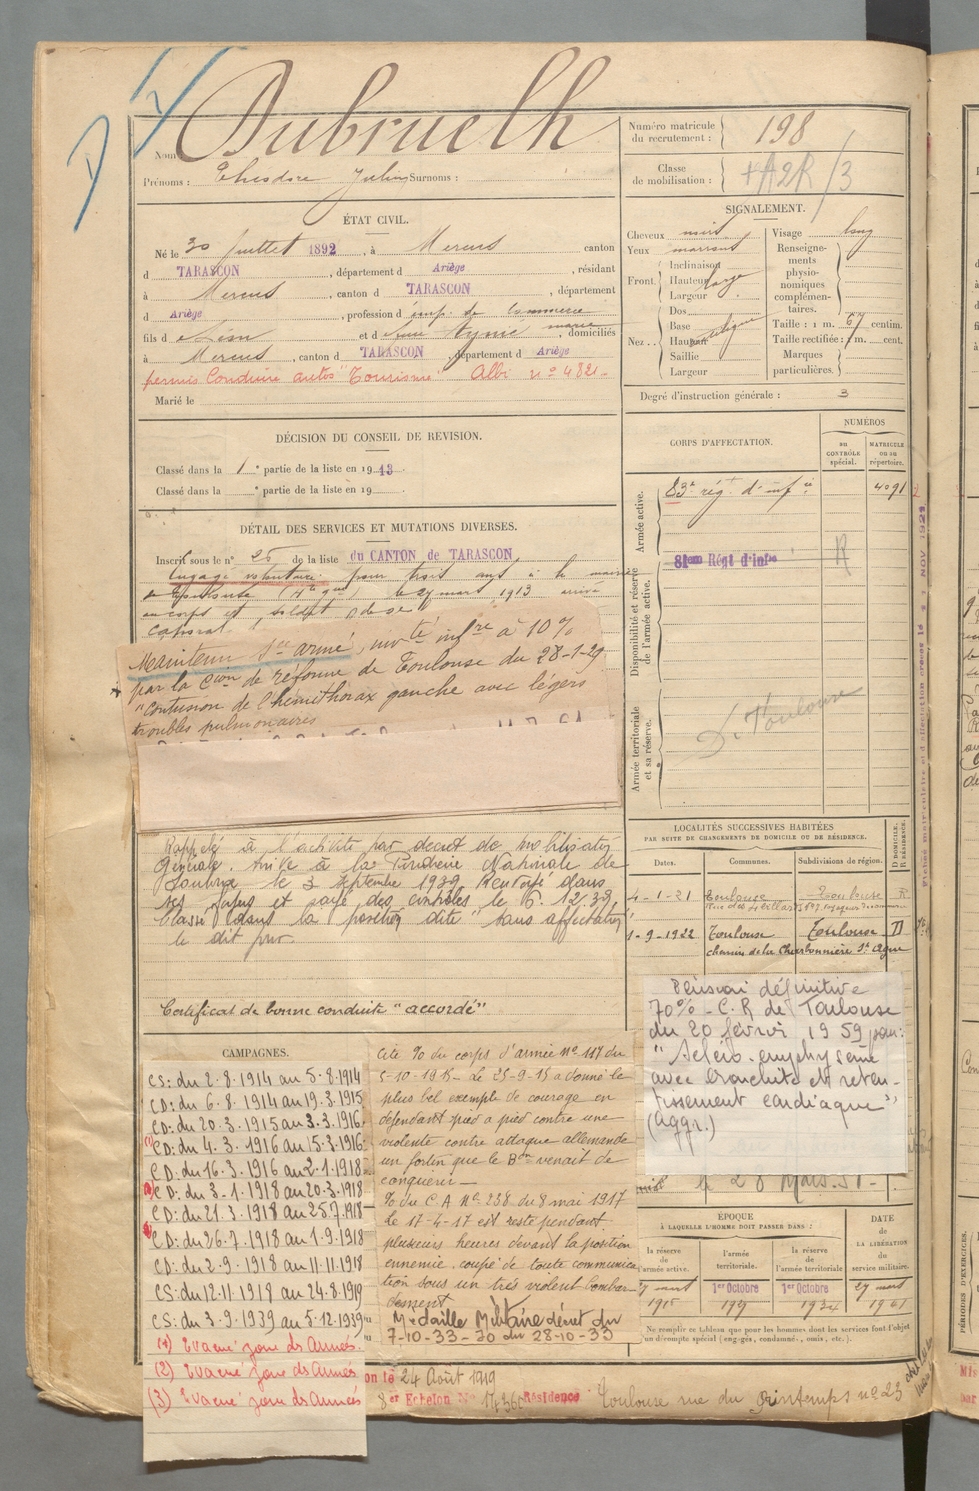 Nom : Dubruelh
Prénoms : Théodore Julien Surnoms :
Numéro matricule du recrutement : 198
Classe de mobilisation : +A2R/3
ÉTAT CIVIL.
Né le 30 Juillet 1892, à Mercus canton
d TARASCON, département d Ariège, résidant
à Mercus, canton d TARASCON, département
d Ariège, profession d emp. de Commerce
fils d et d domiciliés
à Mercus, canton d TARASCON, département d Ariège
permis Conduire autos "Tourisme" Albi n° 4821
Marié le
SIGNALEMENT.
Cheveux noirs
Yeux marrons
Front. Inclinaison
Hauteur large
Largeur
Nez.. Dos
Base
Hauteur
Saillie
Largeur
Visage long
Renseignements physionomiques complémentaires.
Taille : 1 m. 67 centim.
Taille rectifiée : 1 m. cent.
Marques particulières.
Degré d'instruction générale : 3
DÉCISION DU CONSEIL DE REVISION.
Classé dans la 1e partie de la liste en 1913.
Classé dans la e partie de la liste en 19
CORPS D'AFFECTATION.
NUMÉROS
au CONTRÔLE spécial.
MATRICULE ou au répertoire.
Armée active.
83e régt d'infie 4091
Disponibilité et réserve de l'armée active.
81eme Régt d'infie R
Armée territoriale et sa réserve.
D. Toulouse
DÉTAIL DES SERVICES ET MUTATIONS DIVERSES.
Inscrit sous le n° 26 de la liste du CANTON de TARASCON,
Engagé volontaire pour trois ans à la mairie
de Toulouse le 27 mars 1913 arrivé
au corps et soldat de 2e
Caporal
Maintenu Sce armé, invté infre à 10 %
par la Cion de réforme de Toulouse du 28-1-29
"Contusion de l'hémithorax gauche avec légers
troubles pulmonaires
Rappelé à l'activité par décret de mobilisation
Générale. Arrivé à la Poudrerie Nationale de
Toulouse le 3 septembre 1939. Renvoyé dans
ses foyers et rayé des contrôles le 6.12.39.
Classé dans la position dite "sans affectation"
le dit jour
Certificat de bonne conduite "accordé"
LOCALITÉS SUCCESSIVES HABITÉES
PAR SUITE DE CHANGEMENTS DE DOMICILE OU DE RÉSIDENCE.
Dates. Communes. Subdivisions de région. D DOMICILE. R RÉSIDENCE.
4-1-21 Toulouse Toulouse R
1-9-1922 Toulouse Toulouse D
chemin de la Charbonnière St Agne
Pension définitive
70% - C.R de Toulouse
du 20 février 1959 pour:
"Scléro-emphysème
avec bronchite et reten-
tissement cardiaque"
(aggr.)
CAMPAGNES.
CS: du 2.8.1914 au 5.8.1914
CD: du 6.8.1914 au 19.3.1915
CD: du 20.3.1915 au 3.3.1916
(1) CD: du 4.3.1916 au 15.3.1916
CD: du 16.3.1916 au 2.1.1918
(2) CD: du 3.1.1918 au 20.3.1918
CD: du 21.3.1918 au 25.7.1918
(3) CD: du 26.7.1918 au 1.9.1918
CD: du 2.9.1918 au 11.11.1918
CS: du 12.11.1918 au 24.8.1919
CS: du 3.9.1939 au 5.12.1939
(1) Evacué zone des Armées.
(2) Evacué zone des Armées
(3) Evacué zone des Armées
Cité % du corps d'armée n° 117 du
5-10-1915 - Le 25-9-15 a donné le
plus bel exemple de courage en
défendant pied à pied contre une
violente contre attaque allemande
un fortin que le Bon venait de
conquérir —
% du C A N° 238 du 8 mai 1917
le 17-4-17 est resté pendant
plusieurs heures devant la position
ennemie, coupé de toute communica
tion sous un très violent bombar-
dement
Médaille Militaire décret du
7-10-33 - JO du 28-10-33
ÉPOQUE
À LAQUELLE L'HOMME DOIT PASSER DANS :
DATE de LA LIBÉRATION du service militaire.
la réserve de l'armée active.
l'armée territoriale.
la réserve de l'armée territoriale.
27 mars 1er Octobre 1er Octobre 27 mars
1915
Ne remplir ce tableau que pour les hommes dont les services font l'objet
d'un décompte spécial (engagés, condamnés, omis, etc.).
on le 24 Août 1919
8er Echelon N° Résidence Toulouse rue du Printemps n° 23